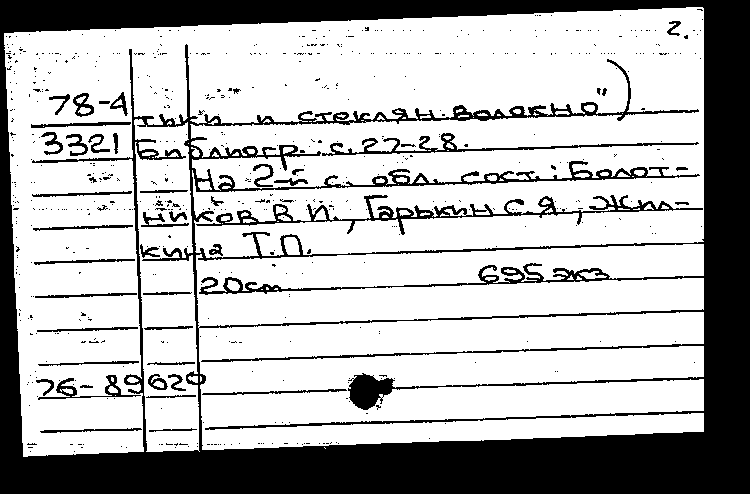 2.
78-4 тики и стеклян. волокно").
3321 Библиогр.: с. 27-28.
На 2-й с. обл. сост.: Болот-
ников В.И., Гарькин С.Я., Жил-
кина Т.П.
20см 695 экз
76-89620